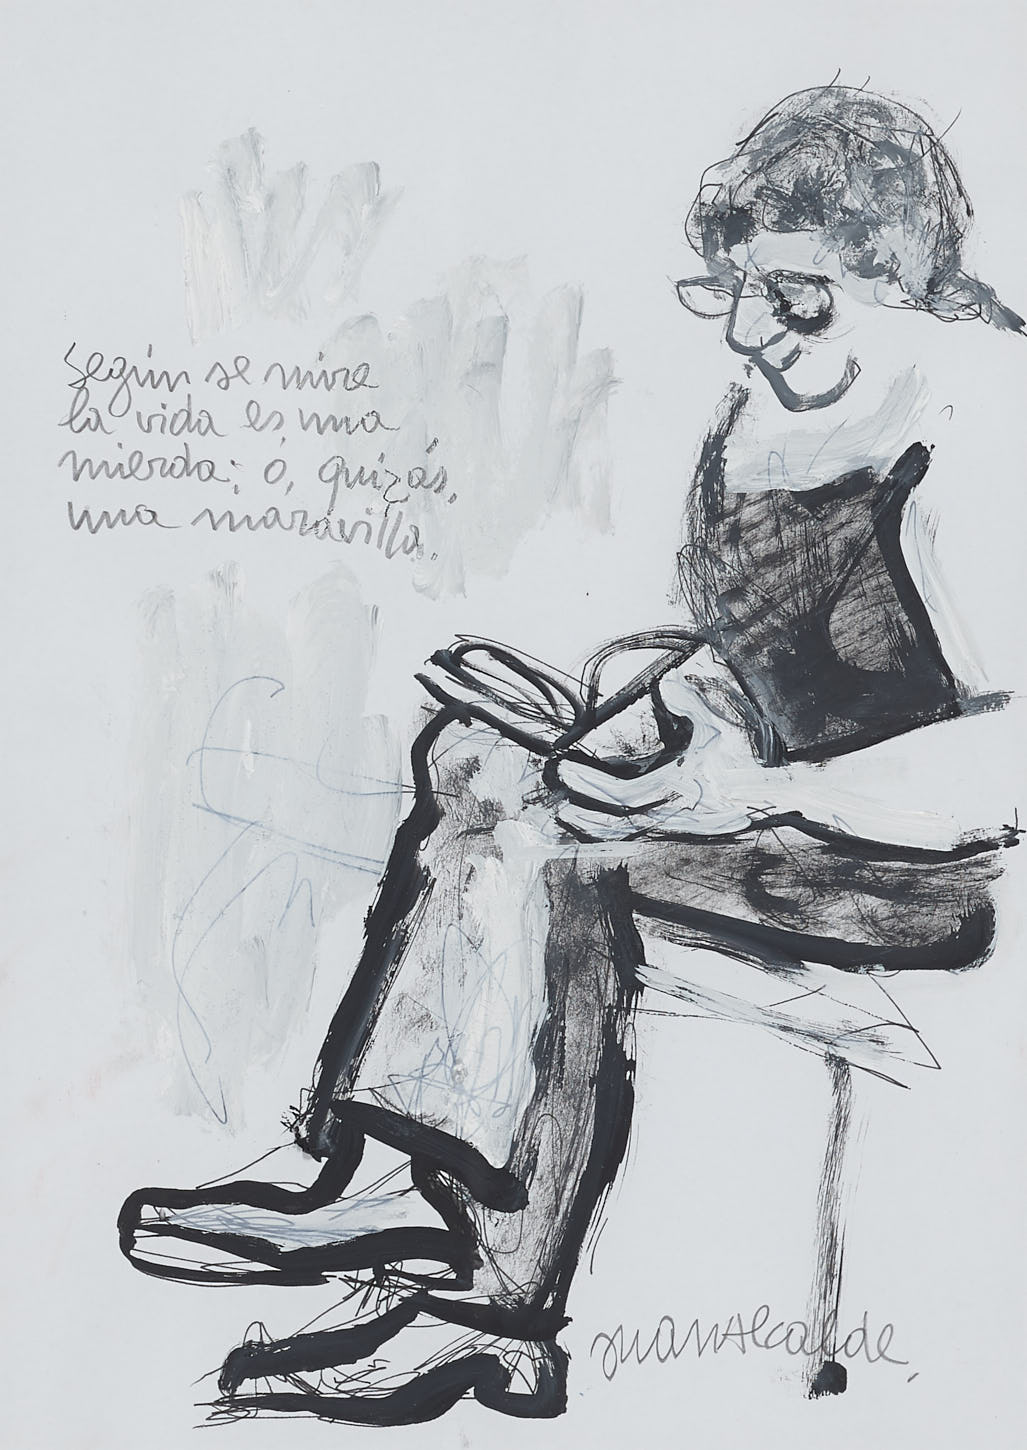 según se mire
la vida es una
mierda; o, quizás,
una maravilla.
Juan Alcalde.